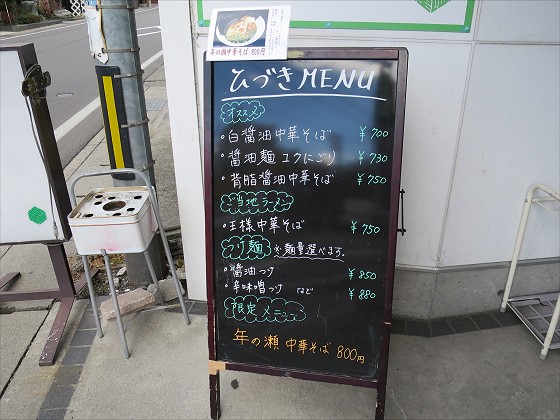 年の瀬中華そば 800円
ひづきMENU
オススメ
・白醤油中華そば ¥700
・醤油麺 コクにごり ¥730
・背脂醤油中華そば ¥750
ご当地ラーメン
・王様中華そば ¥750
つけ麺 ※麺量選べます。
・醤油つけ ¥850
・辛味噌つけ など ¥880
限定メニュー
年の瀬 中華そば 800円